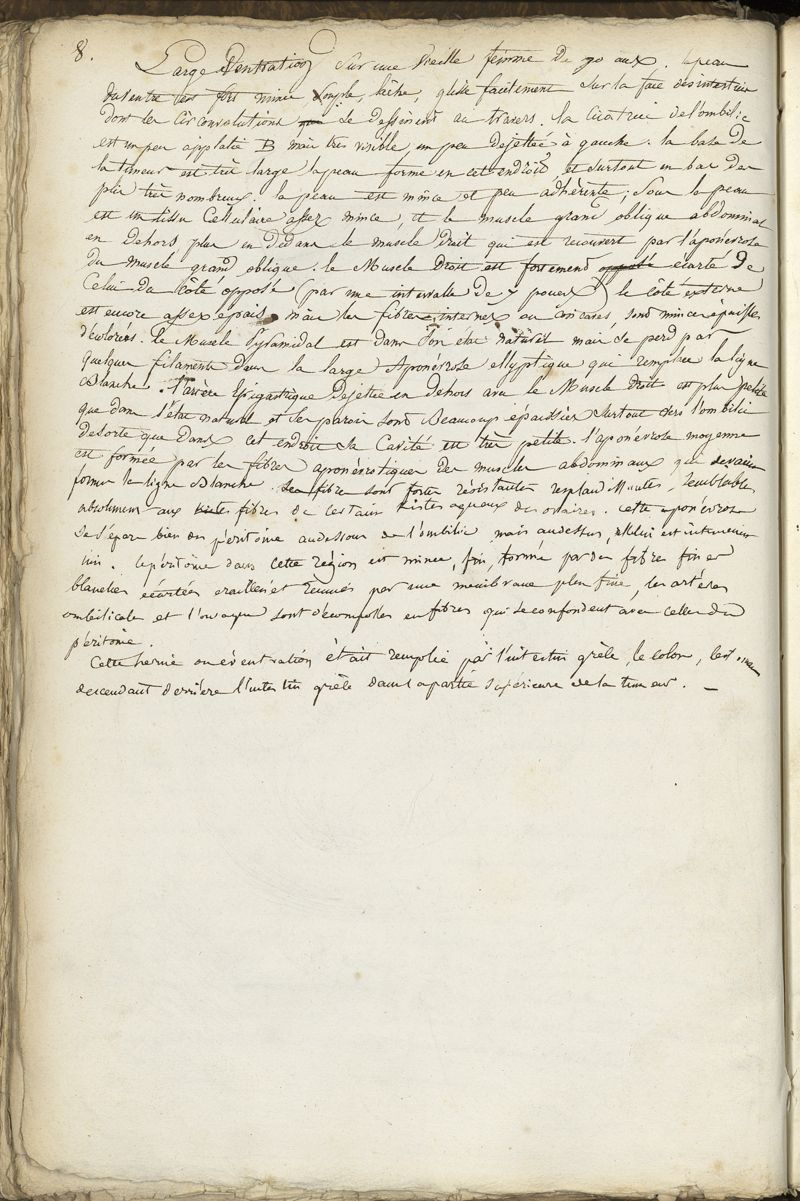 8.
Large Eventration sur une vieille femme de 70 ans. la peau
du ventre est fort mince souple, lâche, glisse facilement sur la face des intestins
dont les circonvolutions se dessinent au travers. la cicatrice de l'ombilic
est un peu applatie B mais très visible, un peu dejettée à gauche. la base de
la tumeur est très large la peau forme en cet endroit, et surtout en bas des
plis très nombreux. la peau est mince et peu adhérente; sous la peau
est un tissu cellulaire assez mince, et le muscle grand oblique abdominal
en dehors plus en dedans le muscle droit qui est recouvert par l'aponévrose
du muscle grand oblique. le Muscle droit est fortement opposé écarté de
celui du côté opposé (par une intervalle de 7 pouces) le côté externe
est encore assez épais mais les fibres internes ou sont mince épuisées
décolorées. le Muscle Pyramidal est dans son état naturel mais se perd par
quelques filaments dans la large Aponévrose ellyptique qui remplace la ligne
Blanche. l'artère Epigastrique dejettée en dehors avec le Muscle droit est plus petite
que dans l'état naturel et ses parois sont Beaucoup épaissies surtout vers l'ombilic
de sorte que dans cet endroit sa cavité est très petite. l'aponévrose moyenne
est formée par les fibres aponévrotiques des muscles abdominaux qui devaient
former la ligne Blanche. Les fibres sont fortes résistantes resplendissantes, semblables
absolument aux fibres de certains kistes aqueux des ovaires. cette aponévrose
se sépare bien du péritoine au dessous de l'ombilic, mais au dessus, elle lui est intimement
unie. le péritoine dans cette région est mince, fin, formé par des fibres fines
blanches écartées eraillées et réunies par une membrane plus fine, les artères
ombilicales et l'ouraque sont décomposées en fibres qui se confondent avec celles du
péritoine.
Cette hernie ou éventration était remplie par l'intestin grêle, le colon,
descendant derrière l'intestin grêle dans la partie supérieure de la tumeur. —